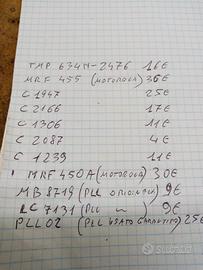 TMP 634H-2476 16€
MRF 455 (MOTOROLA) 36€
C 1947 25€
C 2166 17€
C 1306 11€
C 2087 4€
C 1239 11€
MRF 450A (MOTOROLA) 30€
MB 8719 (PLL ORIGINALE) 9€
LC 7131 (PLL 9€
PLL02 (PLL USATO GARANTITO) 25€
subito